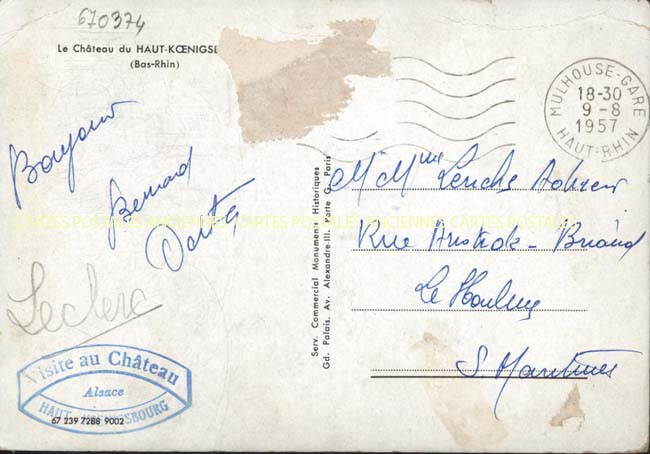 670374
Le Château du HAUT-KŒNIGSE
(Bas-Rhin)
MULHOUSE-GARE
18-30
9-8
1957
HAUT-RHIN
Bonjour
Bernard
Leclerc
Visite au Château
Alsace
HAUT-KŒNIGSBOURG
67 239 7288 9002
Serv. Commercial Monuments Historiques
Gd. Palais. Av. Alexandre-III. Porte G. Paris
CARTES POSTALES ANCIENNES CARTES POSTALES ANCIENNES CARTES POSTALES
M Mme
Rue Aristide-Briand
Le Houlme
S. Maritimes